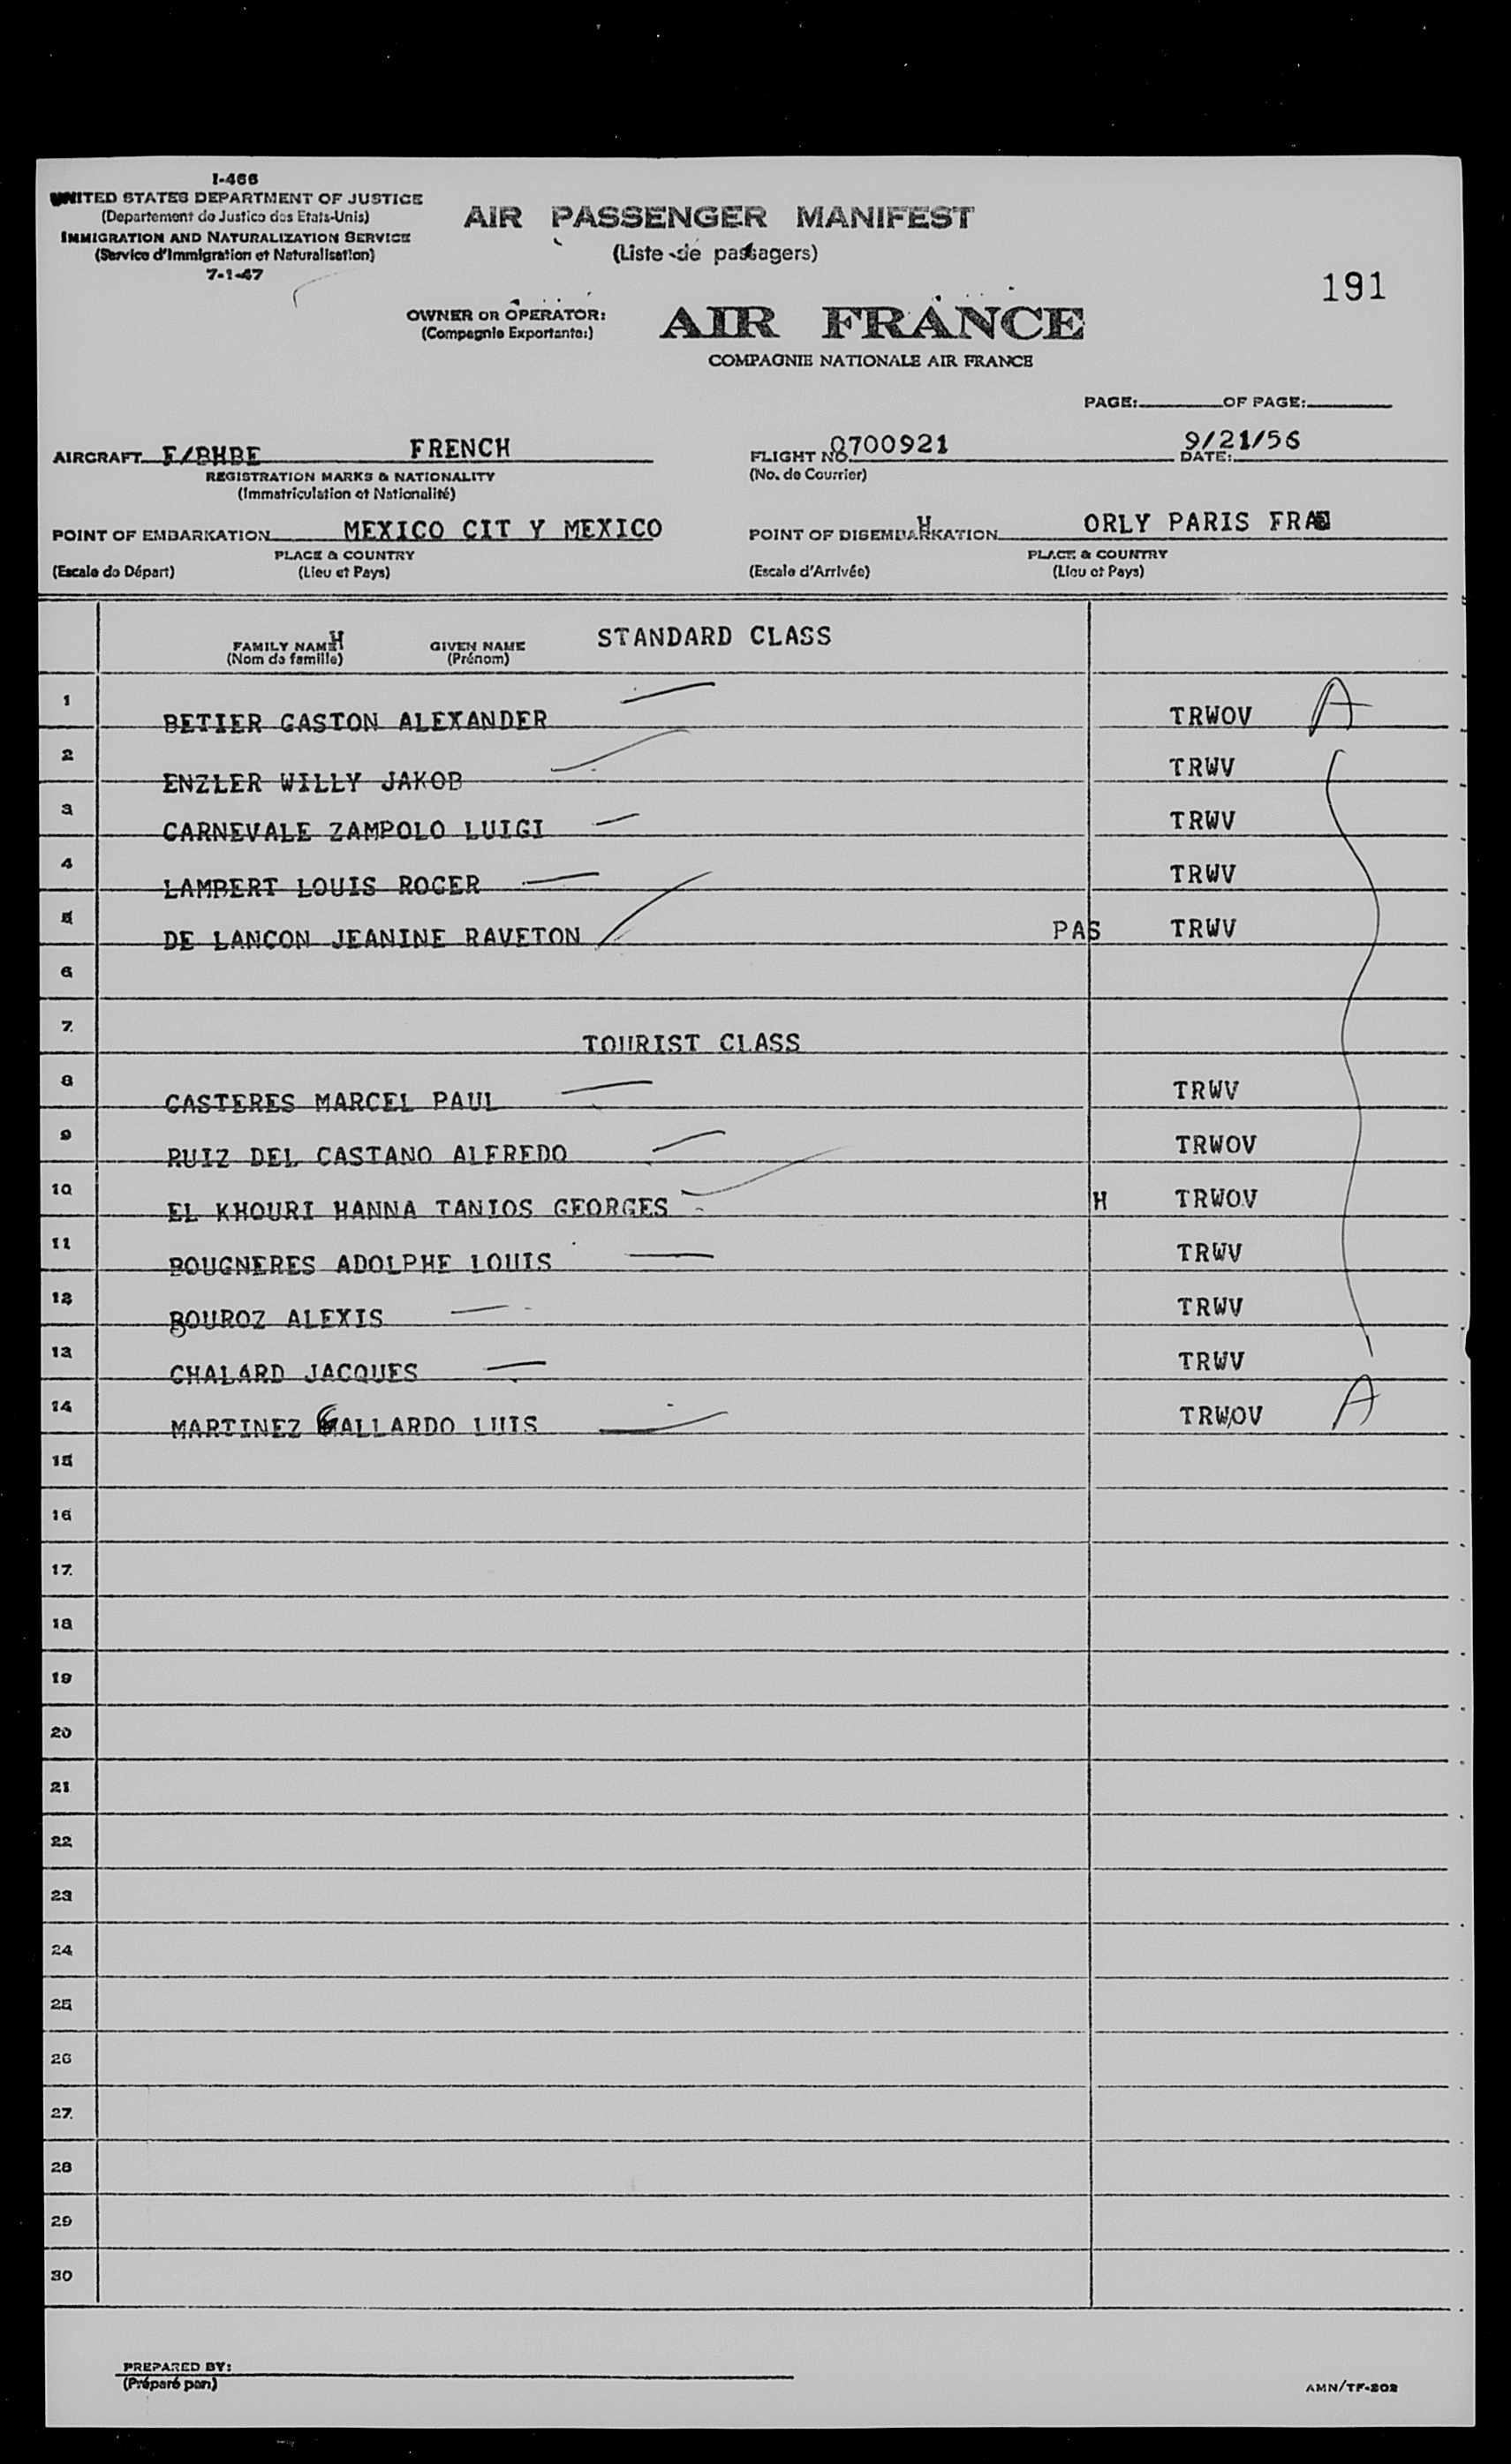 I-466
UNITED STATES DEPARTMENT OF JUSTICE
(Departement de Justice des Etats-Unis)
IMMIGRATION AND NATURALIZATION SERVICE
(Service d'Immigration et Naturalisation)
7-1-47
AIR PASSENGER MANIFEST
(Liste de passagers)
191
OWNER OR OPERATOR:
(Compagnie Exportante:)
AIR FRANCE
COMPAGNIE NATIONALE AIR FRANCE
PAGE: OF PAGE:
AIRCRAFT F/BHBE FRENCH
REGISTRATION MARKS & NATIONALITY
(Immatriculation et Nationalité)
FLIGHT No. 0700921
(No. de Courrier)
DATE: 9/21/56
POINT OF EMBARKATION MEXICO CIT Y MEXICO
PLACE & COUNTRY
(Escale de Départ) (Lieu et Pays)
POINT OF DISEMBARKATION ORLY PARIS FRA
H
PLACE & COUNTRY
(Escale d'Arrivée) (Lieu et Pays)
FAMILY NAME H GIVEN NAME STANDARD CLASS
(Nom de famille) (Prénom)
1 BETIER GASTON ALEXANDER TRWOV A
2 ENZLER WILLY JAKOB TRWV
3 CARNEVALE ZAMPOLO LUIGI TRWV
4 LAMBERT LOUIS ROGER TRWV
5 DE LANCON JEANINE RAVETON PAS TRWV
6
7 TOURIST CLASS
8 CASTERES MARCEL PAUL TRWV
9 RUIZ DEL CASTANO ALFREDO TRWOV
10 EL KHOURI HANNA TANIOS GEORGES H TRWOV
11 BOUGNERES ADOLPHE LOUIS TRWV
12 BOUROZ ALEXIS TRWV
13 CHALARD JACQUES TRWV
14 MARTINEZ GALLARDO LUIS TRWOV A
15
16
17
18
19
20
21
22
23
24
25
26
27
28
29
30
PREPARED BY:
(Préparé par:)
AMN/TF-202